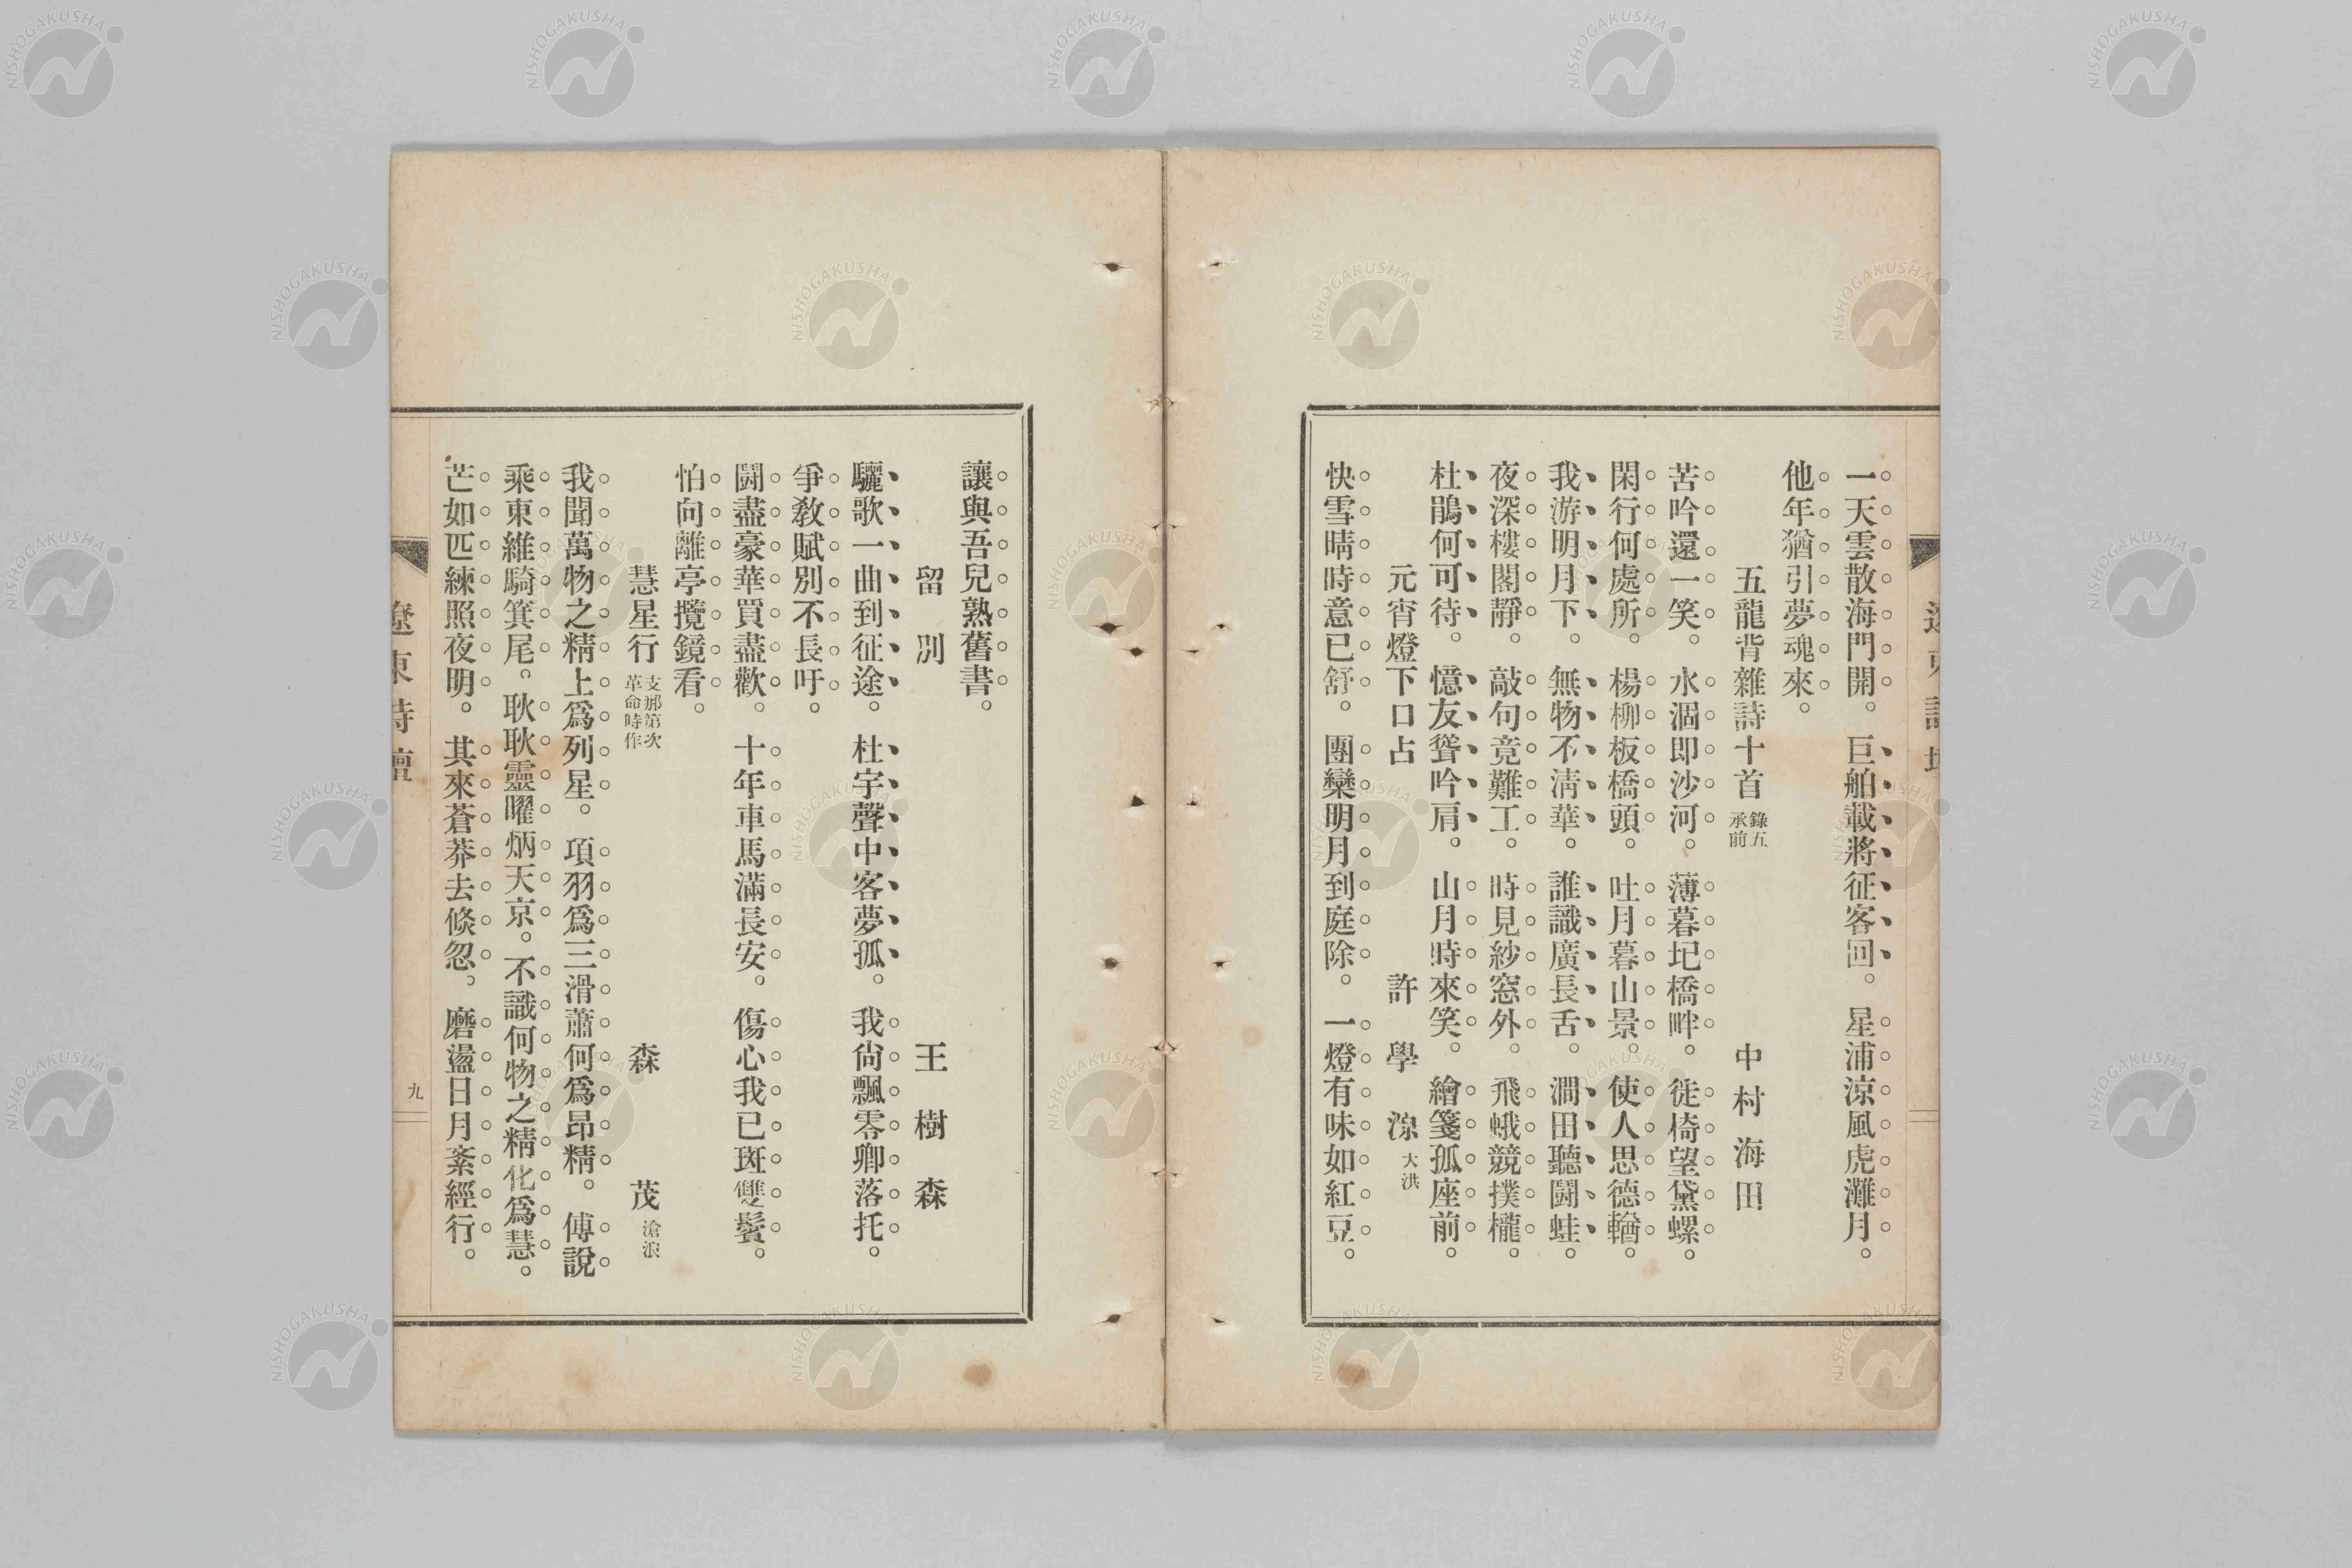 一天雲散海門開。巨舶載將征客回。星浦涼風虎灘月。
他年猶引夢魂來。
五龍背雜詩十首 錄五承前 中村海田
苦吟還一笑。水涸即沙河。薄暮圯橋畔。徙椅望黛螺。
閑行何處所。楊柳板橋頭。吐月暮山景。使人思德輶。
我游明月下。無物不淸華。誰識廣長舌。澗田聽鬪蛙。
夜深樓閣靜。敲句竟難工。時見紗窓外。飛蛾競撲櫳。
杜鵑何可待。憶友聳吟肩。山月時來笑。繪箋孤座前。
元宵燈下口占 許學湶 大洪
快雪晴時意已舒。團欒明月到庭除。一燈有味如紅豆。
讓與吾兒熟舊書。
留別 王樹森
驪歌一曲到征途。杜宇聲中客夢孤。我尙飄零卿落托。
爭教賦別不長吁。
鬪盡豪華買盡歡。十年車馬滿長安。傷心我已斑雙鬢。
怕向離亭攬鏡看。
慧星行 支那第次革命時作 森茂 滄浪
我聞萬物之精上爲列星。項羽爲三滑蕭何爲昂精。傅說
乘東維騎箕尾。耿耿靈曜炳天京。不識何物之精化爲慧。
芒如匹練照夜明。其來蒼莽去倐忽。磨盪日月紊經行。
遼東詩壇
九